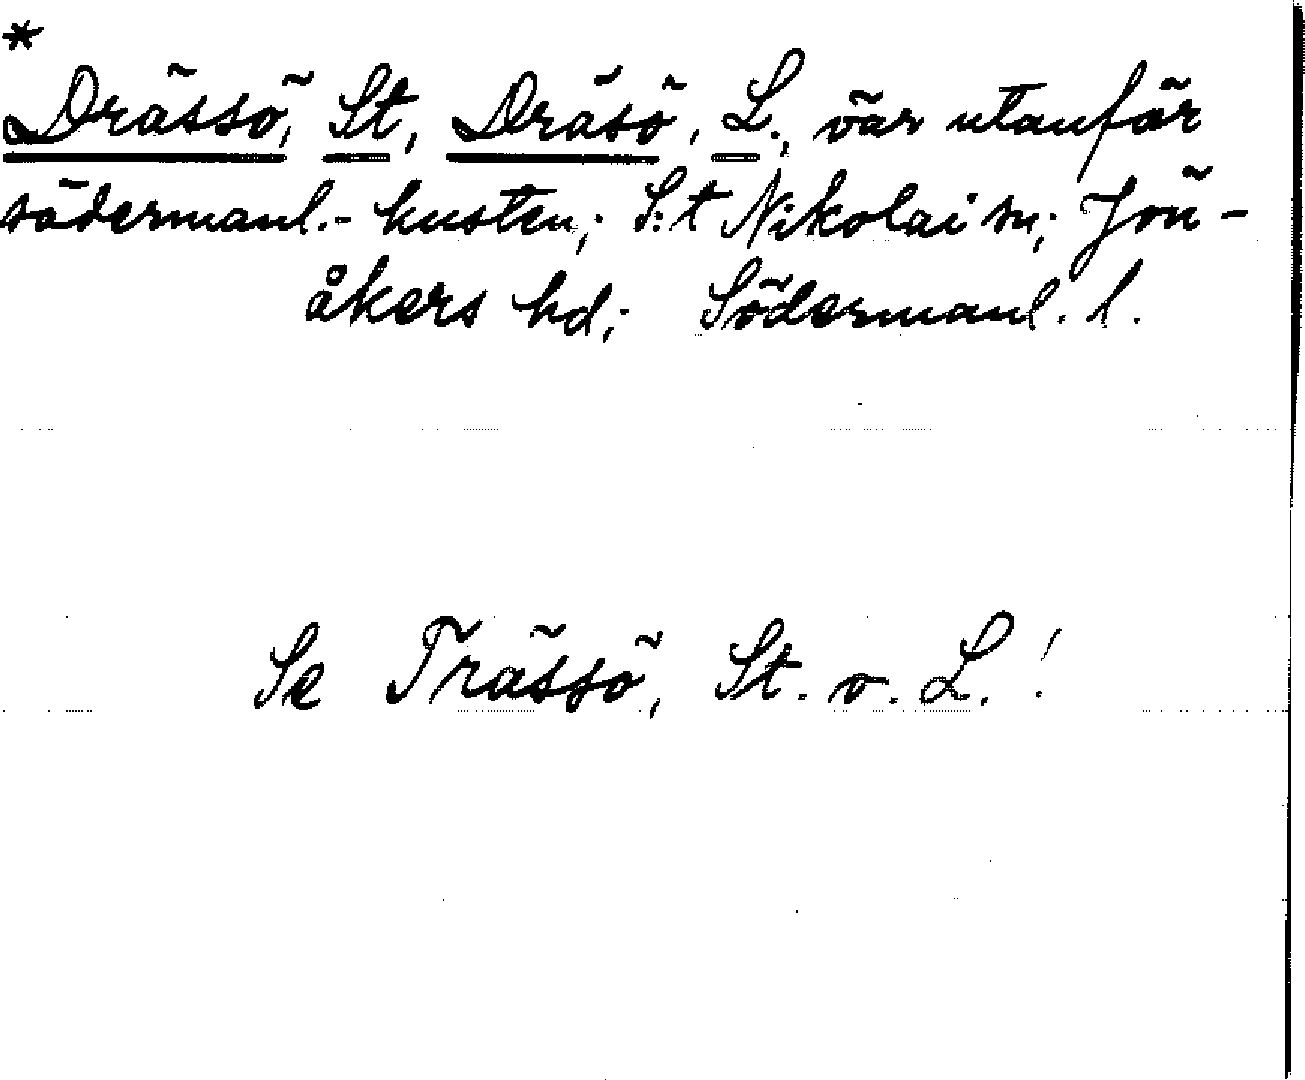 *
Drässö, St, Dräsö, L., öar utanför
södermanl.- kusten; S:t Nikolai sn; Jön-
åkers hd; Södermanl. l.
Se Trässö, St. o. L.!